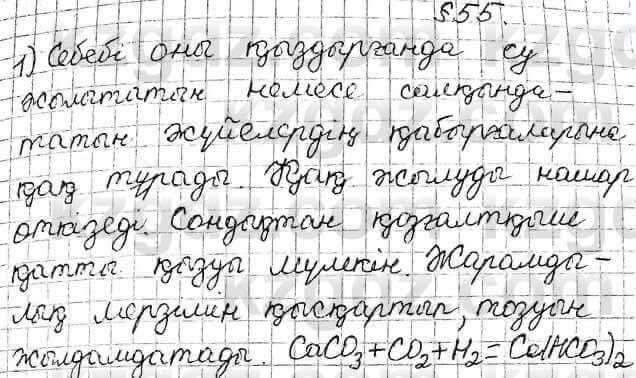 §55.
1) Себебі оны қыздырғанда су
жылытатын немесе салқында-
татын жүйелердің қабырғаларына
қақ тұрады. Қақ жылуды нашар
өткізеді. Сондықтан қозғалтқыш
қатты қызуы мүмкін. Жарамды-
лық мерзімін қысқартып, тозуын
жылдамдатады. CaCO3+CO2+H2=Ca(HCO3)2